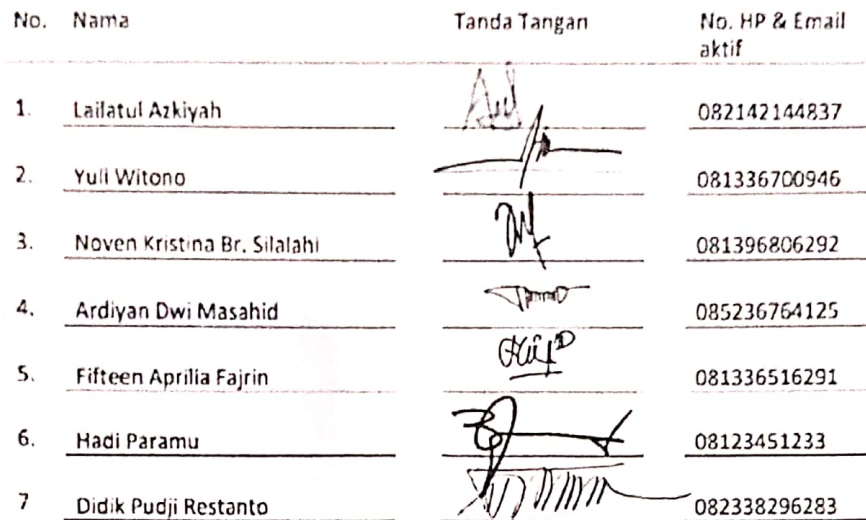 No. Nama Tanda Tangan No. HP & Email
aktif
1. Lailatul Azkiyah 082142144837
2. Yuli Witono 081336700946
3. Noven Kristina Br. Silalahi 081396806292
4. Ardiyan Dwi Masahid 085236764125
5. Fifteen Aprilia Fajrin 081336516291
6. Hadi Paramu 08123451233
7 Didik Pudji Restanto 082338296283